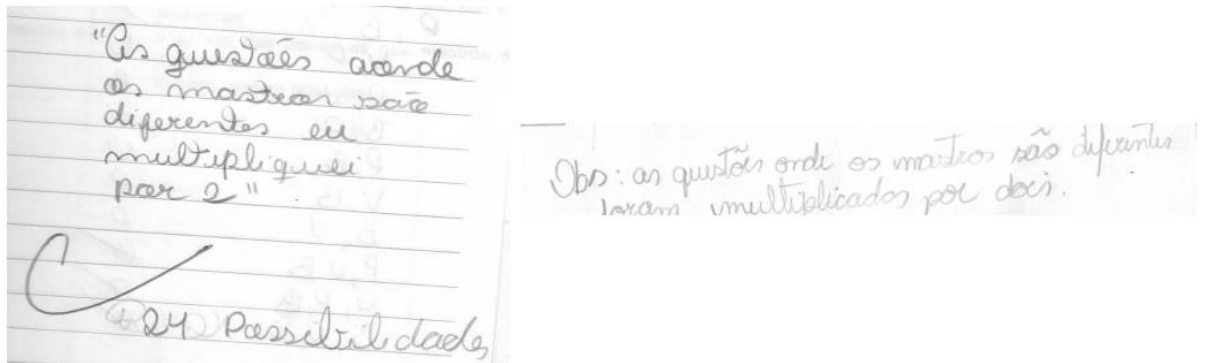 "As questões aonde
os mastros são
diferentes eu
multipliquei
por 2".
C
24 Possibilidades
Obs: as questões onde os mastros são diferentes
foram multiplicados por dois.